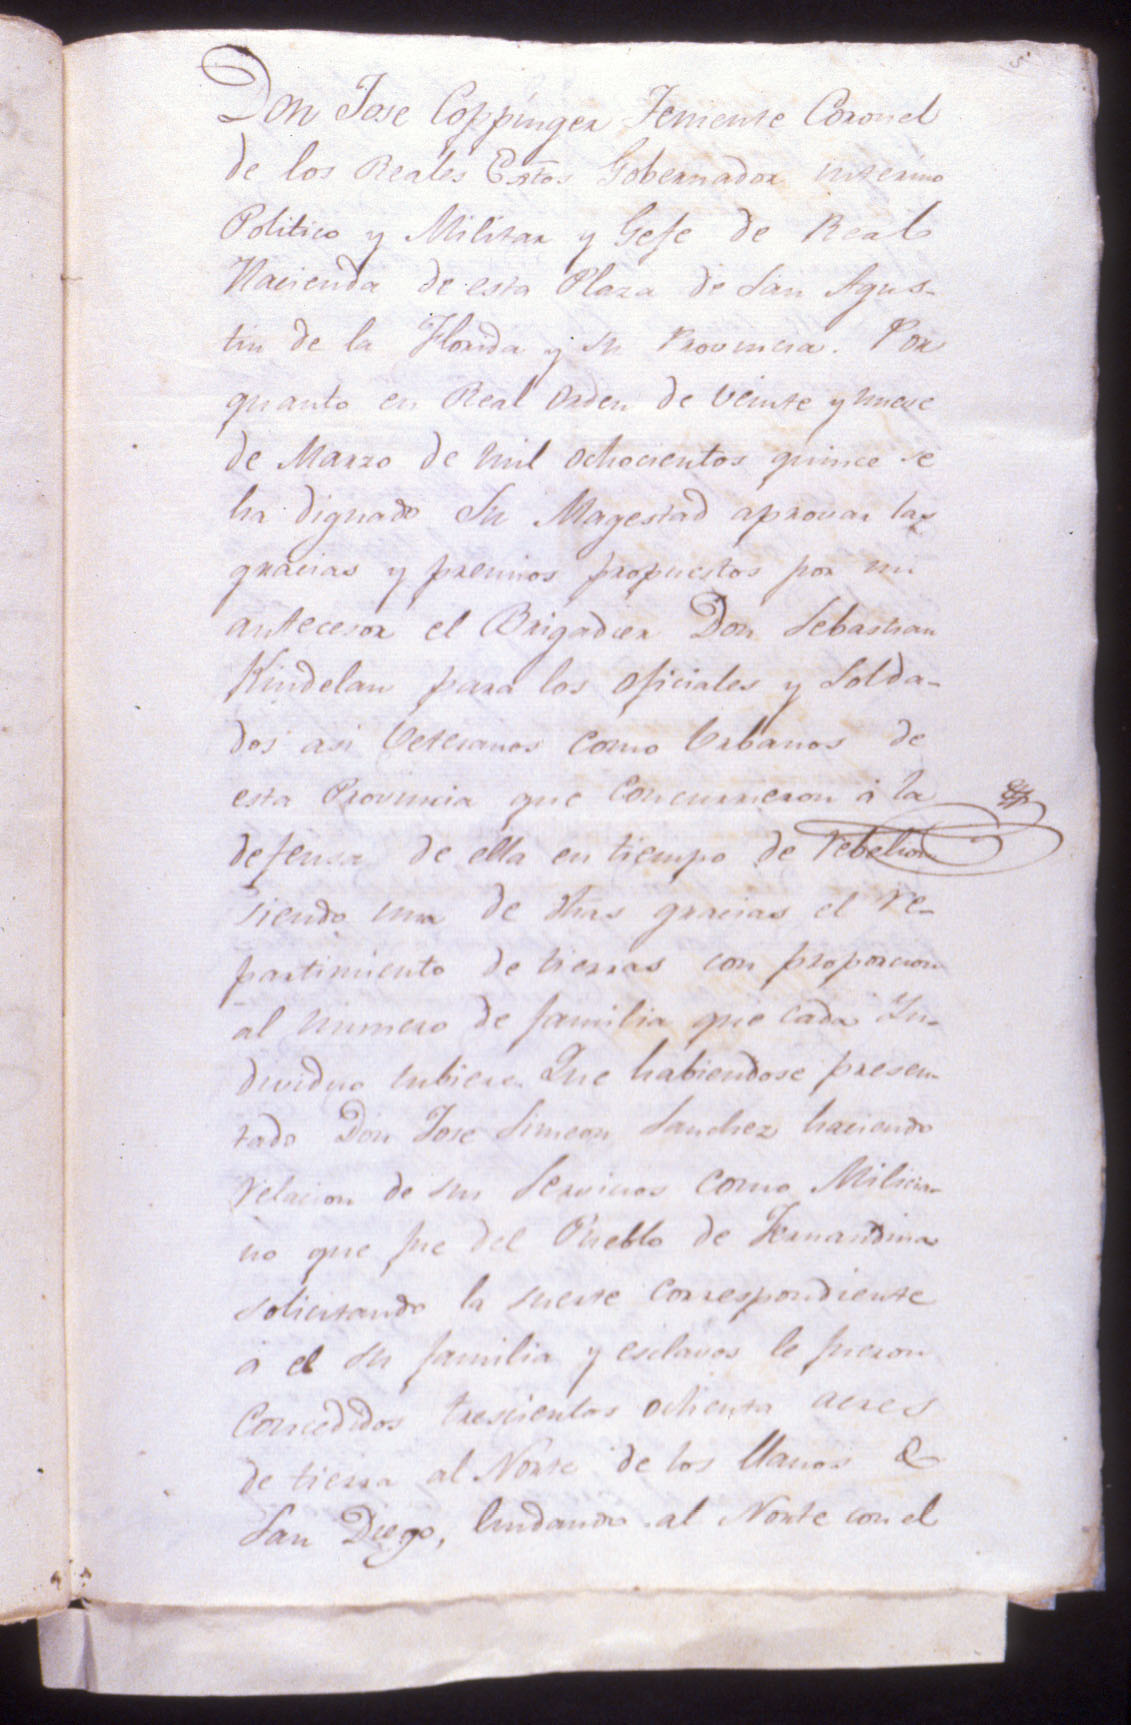 5
Don Jose Coppinger Teniente Coronel
de los Reales Extos Gobernador interino
Politico y Militar y Gefe de Real
Hacienda de esta Plaza de San Agus-
tin de la Florida y su Provincia. Por
quanto en Real orden de veinte y nueve
de Marzo de mil ochocientos quince se
ha dignado Su Magestad aprovar las
gracias y premios propuestos por mi
antecesor el Brigadier Don Sebastian
Kindelan para los oficiales y Solda-
dos asi Veteranos como Urbanos de
esta Provincia que concurrieron á la
defensa de ella en tiempo de rebelion
siendo una de dhas gracias el re-
partimiento de tierras con proporcion
al numero de familia que cada Yn-
dividuo tubiere. Que habiendose presen-
tado Don Jose Simeon Sanchez haciendo
relacion de sus servicios como Milicia-
no que fue del Pueblo de Fernandina
solicitando la suerte correspondiente
á el su familia y esclavos le fueron
concedidos trescientos ochenta acres
de tierra al Norte de los llanos de
San Diego, lindando al Norte con el